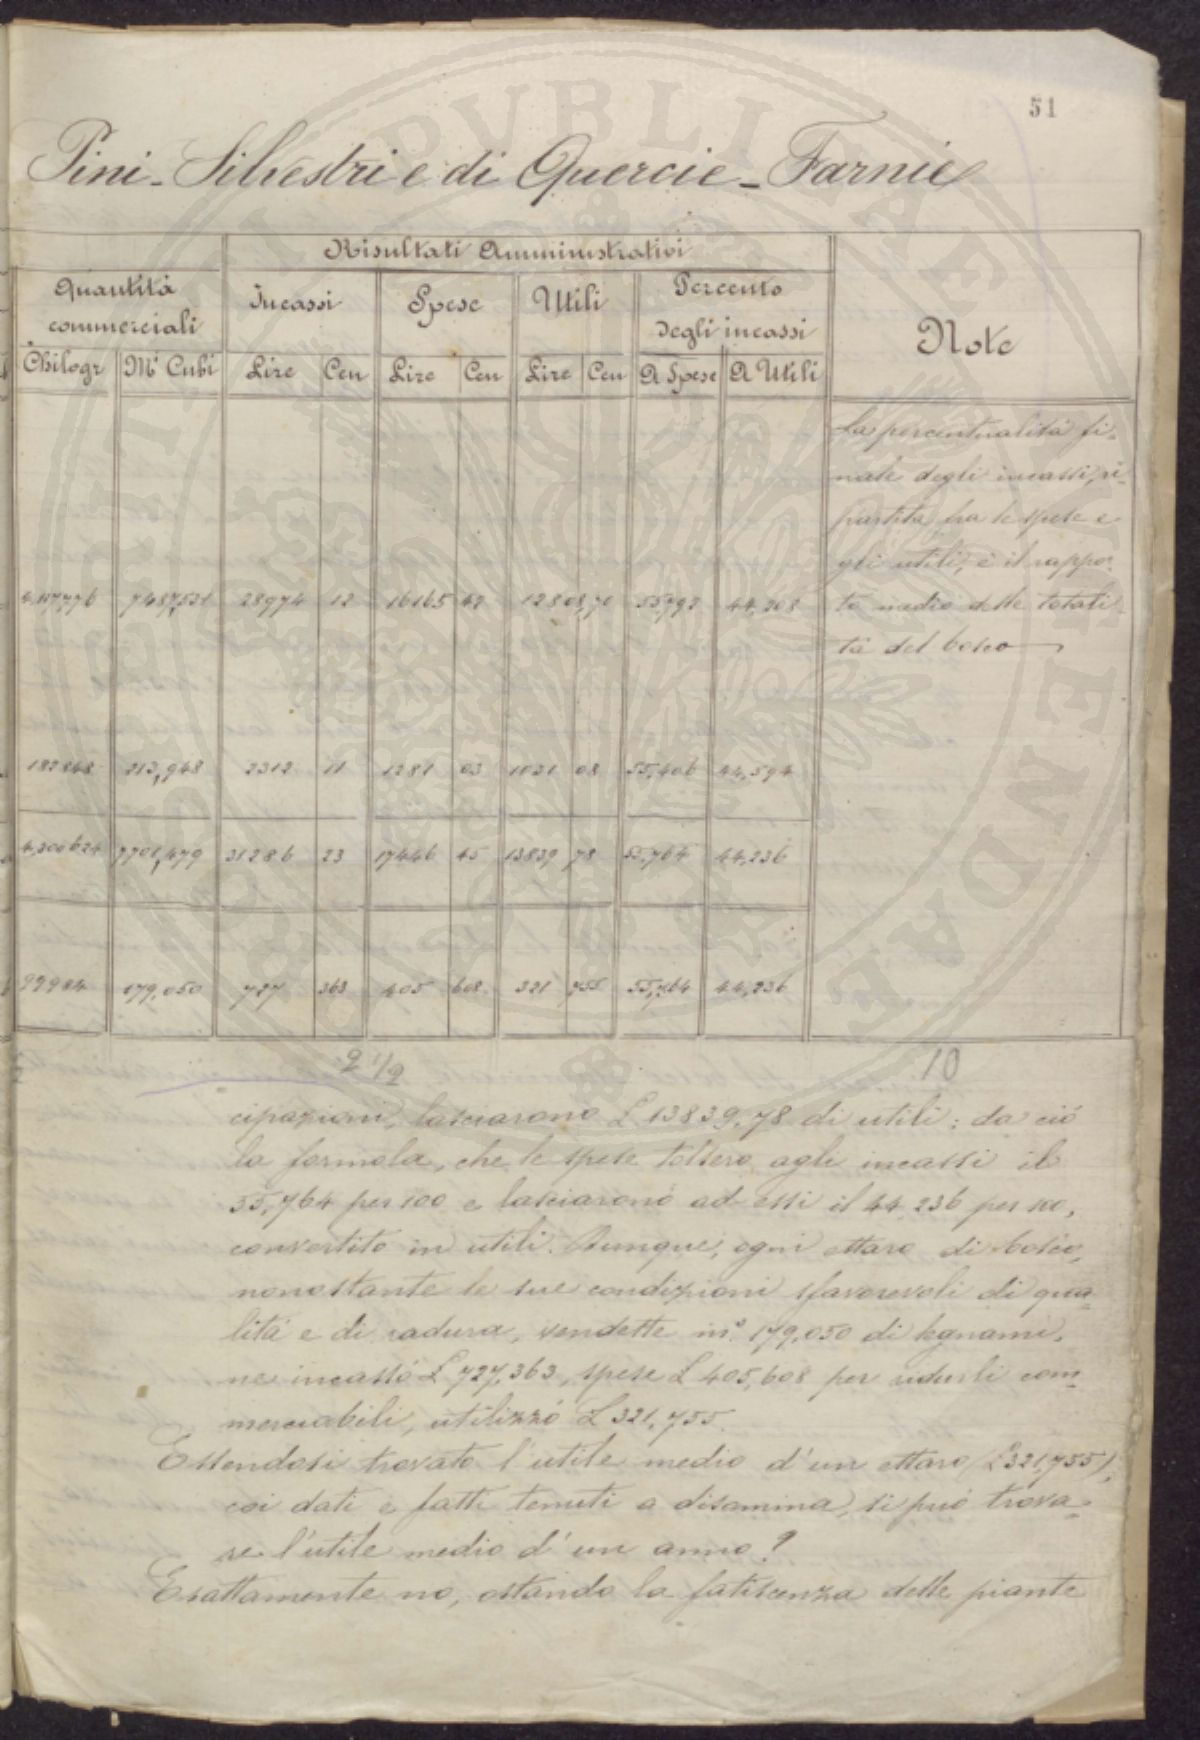 51
Pini-Silvestri e di Quercie-Farnie
Risultati Amministrativi
Quantità commerciali
Incassi
Spese
Utili
Percento degli incassi
Note
Chilogr M.i Cubi Lire Cen Lire Cen Lire Cen A Spese A Utili
La percentualità fi-
nale degli incassi, ri-
partita fra le spese e
gli utili, è il rappor-
to medio delle totali-
tà del bosco
4,117,776 7487,531 28974 12 16165 42 12808,70 55,792 44,208
182848 213,948 2312 11 1281 03 1031 08 55,406 44,594
4,300624 7701,479 31286 23 17446 45 13839 78 55,764 44,236
179,050 727 363 405 608 321 755 55,764 44,236
2 1/2
10
cipazioni, lasciarono L 13839,78 di utili: da ciò
la formola, che le spese tolsero agli incassi il
55,764 per 100 e lasciarono ad essi il 44,236 per 100,
convertito in utili. Dunque, ogni ettaro di bosco,
nonostante le sue condizioni sfavorevoli di qua-
lità e di radura, vendette m.c 179,050 di legnami,
ne incassò L 727,363, spese L 405,608 per ridurli com-
merciabili, utilizzò L 321,755.
Essendosi trovato l'utile medio d'un ettaro (L 321,755),
coi dati e fatti tenuti a disamina, si può trova-
re l'utile medio d'un anno?
Esattamente no, ostando la fatiscenza delle piante